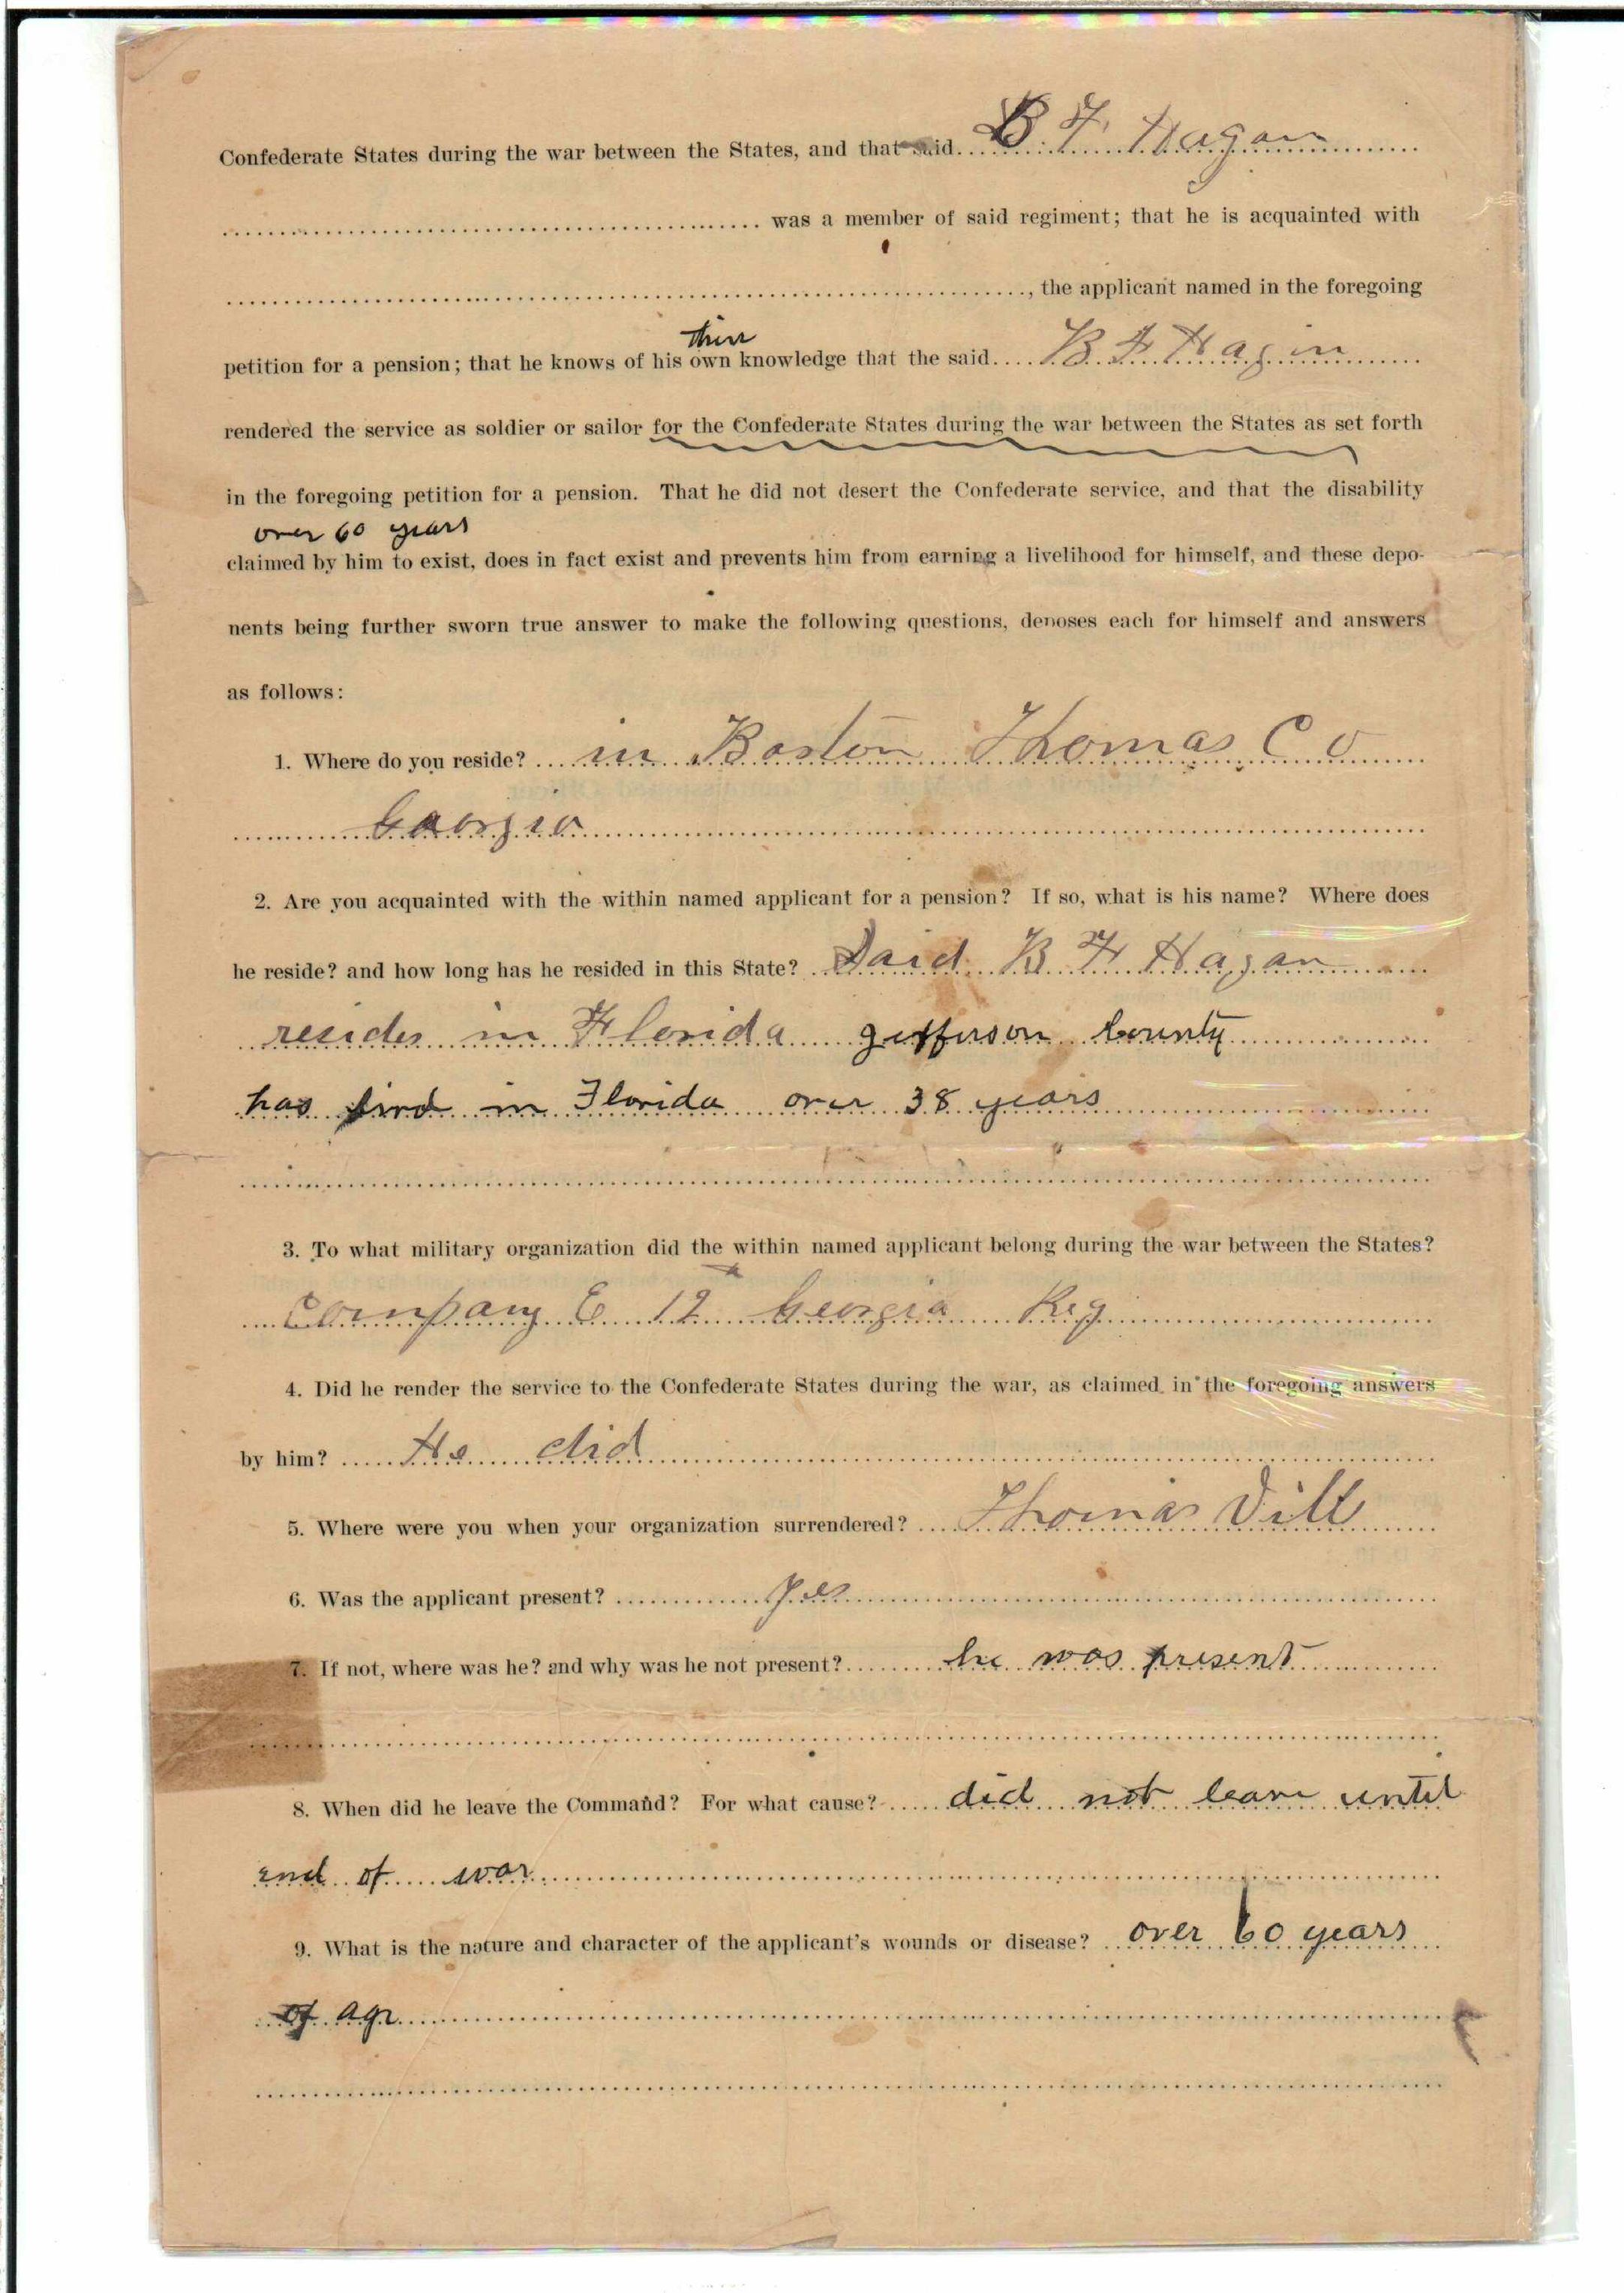 Confederate States during the war between the States, and that said B. F. Hagan
was a member of said regiment; that he is acquainted with
, the applicant named in the foregoing
their
petition for a pension; that he knows of his own knowledge that the said B F Hagin
rendered the service as soldier or sailor for the Confederate States during the war between the States as set forth
in the foregoing petition for a pension. That he did not desert the Confederate service, and that the disability
over 60 years
claimed by him to exist, does in fact exist and prevents him from earning a livelihood for himself, and these depo-
nents being further sworn true answer to make the following questions, deposes each for himself and answers
as follows:
1. Where do you reside? in Boston Thomas Co
Georgia
2. Are you acquainted with the within named applicant for a pension? If so, what is his name? Where does
he reside? and how long has he resided in this State? Said B F Hagan
resides in Florida Jefferson County
has lived in Florida over 38 years
3. To what military organization did the within named applicant belong during the war between the States?
Company E 12 Georgia Reg
4. Did he render the service to the Confederate States during the war, as claimed in the foregoing answers
by him? He did
5. Where were you when your organization surrendered? Thomas Vill
6. Was the applicant present? yes
7. If not, where was he? and why was he not present? he was present
8. When did he leave the Command? For what cause? did not leave until
end of war
9. What is the nature and character of the applicant's wounds or disease? over 60 years
of age